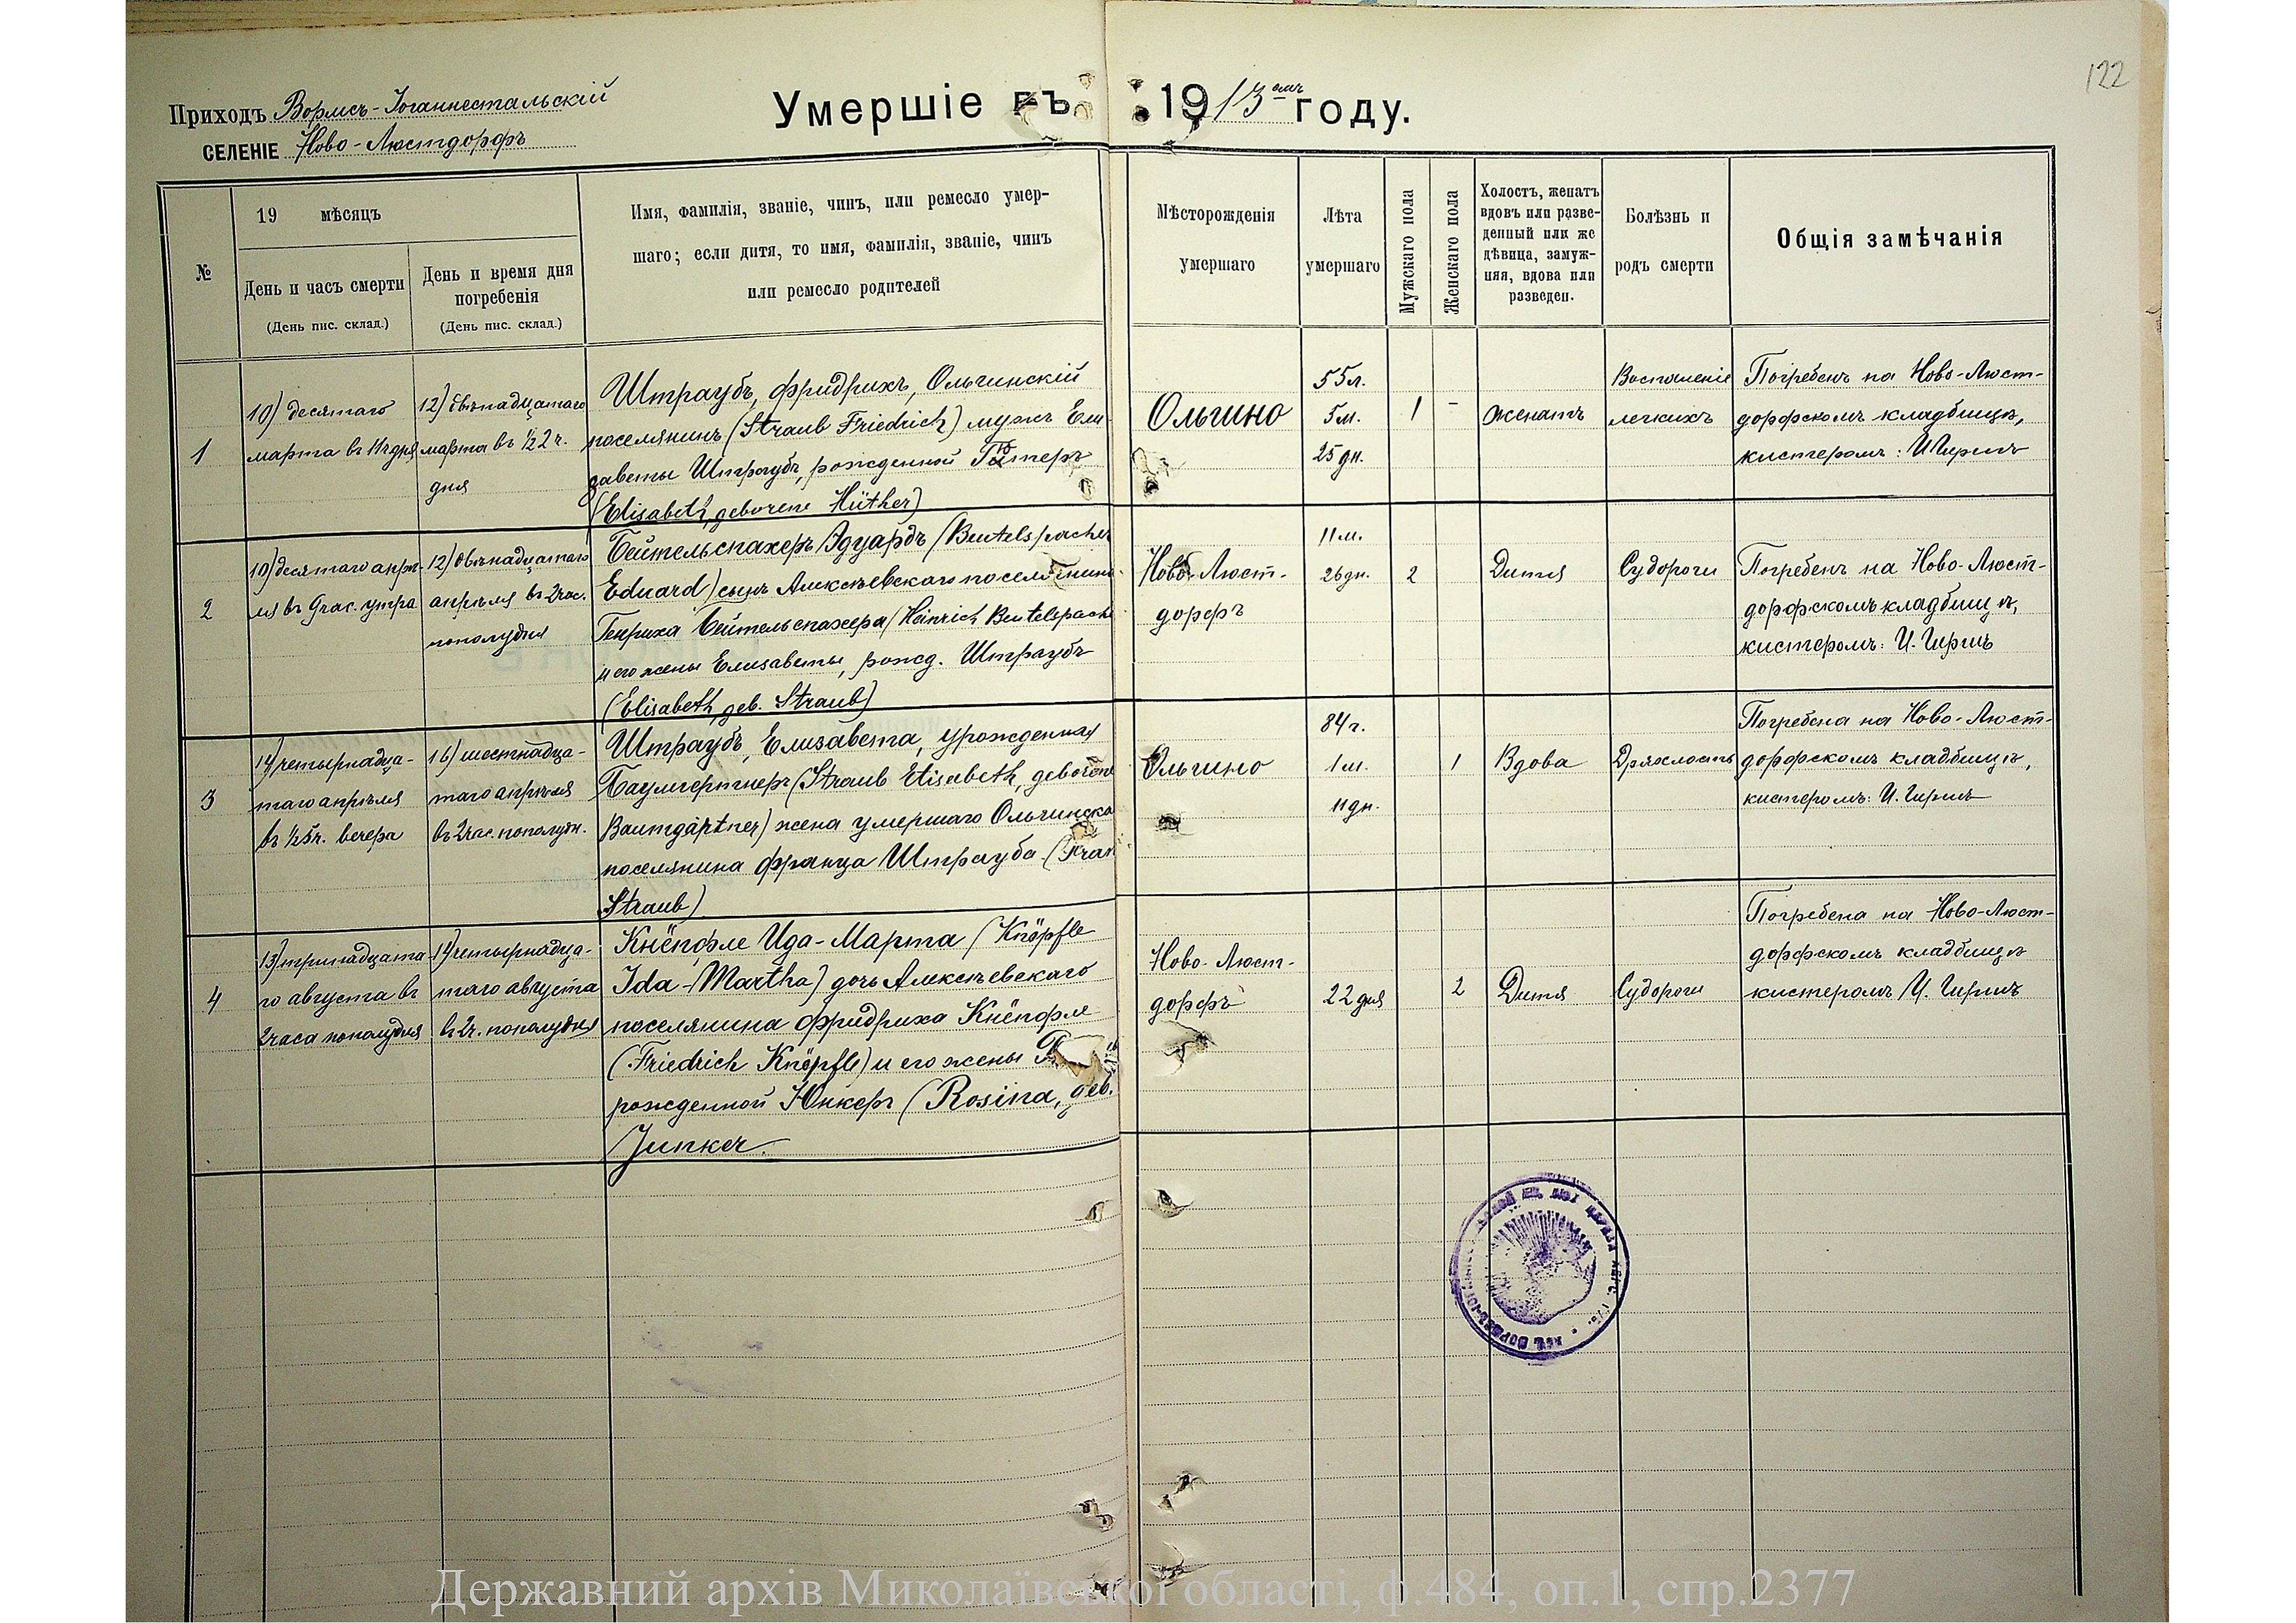 122
Приходъ Вормсъ-Іоганнестальскій
СЕЛЕНІЕ Ново-Люстдорфъ
Умершіе въ 1913омъ году.
№
19 мѣсяцъ
День и часъ смерти
(День пис. склад.)
День и время дня
погребенія
(День пис. склад.)
Имя, фамилія, званіе, чинъ, или ремесло умер-
шаго; если дитя, то имя, фамилія, званіе, чинъ
или ремесло родителей
Мѣсторожденія
умершаго
Лѣта
умершаго
Мужскаго пола
Женскаго пола
Холостъ, женатъ
вдовъ или разве-
денный или же
дѣвица, замуж-
няя, вдова или
разведен.
Болѣзнь и
родъ смерти
Общія замѣчанія
1
10) десятаго
марта въ 11ч дня
12) двѣнадцатаго
марта въ ½2 ч.
дня
Штраубъ, Фридрихъ, Ольгинскій
поселянинъ (Straub Friedrich) мужъ Ели-
заветы Штраубъ, рожденной
(Elisabeth, geborene Hüther)
Ольгино
55л.
5м.
25дн.
1
-
женатъ
Воспаленіе
легкихъ
Погребенъ на Ново-Люст-
дорфскомъ кладбищѣ,
кистеромъ: И Гиршъ
2
10) десятаго апрѣ-
ля въ 9 час. утра
12) двѣнадцатаго
апрѣля въ 2 час.
пополудни
Бейтельспахеръ Эдуардъ (Beutelspacher
Eduard) сынъ Алексѣевскаго поселянина
Генриха Бейтельспахера (Heinrich Beutelspache
и его жены Елизаветы, рожд. Штраубъ
(Elisabeth, geb. Straub)
Ново-Люст-
дорфъ
11м.
26дн.
2
Дитя
Судороги
Погребенъ на Ново-Люст-
дорфскомъ кладбищѣ,
кистеромъ: И. Гиршъ
3
14) четырнадца-
таго апрѣля
въ ½5ч. вечера
16) шестнадца-
таго апрѣля
въ 2 час. пополудн.
Штраубъ, Елизавета, урожденная
Баумгертнеръ (Straub Elisabeth, geborene
Baumgärtner) жена умершаго Ольгинска
поселянина Франца Штрауба (Fran
Straub)
Ольгино
84г.
1м.
11дн.
1
Вдова
Дряхлость
Погребена на Ново-Люст-
дорфскомъ кладбищѣ,
кистеромъ: И. Гиршъ
4
13) тринадцата-
го августа въ
2 часа пополудня
14) четырнадца-
таго августа
въ 2ч. пополудня
Кнёпфле Ида-Марта (Knöpfle
Ida-Martha) дочь Алексѣевскаго
поселянина Фридриха Кнёпфле
(Friedrich Knöpfle) и его жены
рожденной Юнкеръ (Rosina, geb.
Junker.
Ново-Люст-
дорфъ
22 дня
2
Дитя
Судороги
Погребена на Ново-Люст-
дорфскомъ кладбищѣ
кистеромъ И. Гиршъ
Державний архів Миколаївської області, ф.484, оп.1, спр.2377